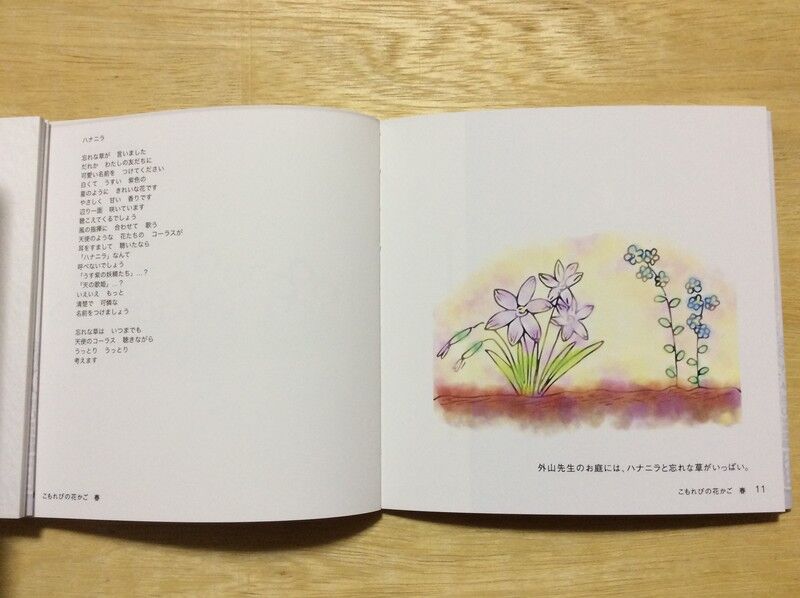 ハナニラ
忘れな草が　言いました
だれか　わたしの友だちに
可愛い名前を　つけてください
白くて　うすい　紫色の
星のように　きれいな花です
やさしく　甘い　香りです
辺り一面　咲いています
聴こえてくるでしょう
風の指揮に　合わせて　歌う
天使のような　花たちの　コーラスが
耳をすまして　聴いたなら
「ハナニラ」なんて
呼べないでしょう
「うす紫の妖精たち」…？
「天の歌姫」…？
いえいえ　もっと
清楚で　可憐な
名前をつけましょう
忘れな草は　いつまでも
天使のコーラス　聴きながら
うっとり　うっとり
考えます
こもれびの花かご　春
外山先生のお庭には、ハナニラと忘れな草がいっぱい。
こもれびの花かご　春　11